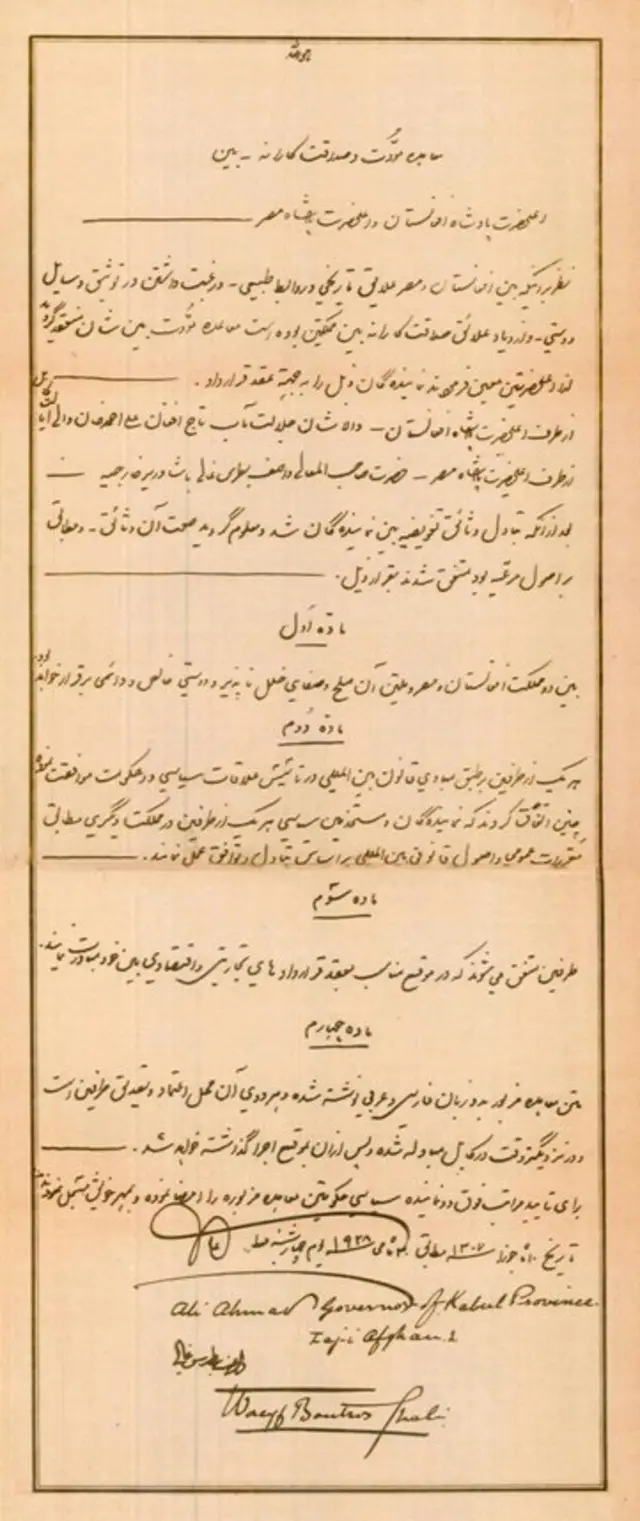 هوالله
معاهده مؤدت و صداقت کارانه - بین
اعلیحضرت پادشاه افغانستان و اعلیحضرت پادشاه مصر
نظر براینکه بین افغانستان و مصر علایق تاریخی و روابط طبیعی - و رغبت داشتن در توثیق وسایل
دوستی - و ازدیاد علائق صداقت کارانه بین مملکتین بوده است معاهده مؤدت بین شان منعقد گردد
لذا اعلیحضرتین معین فرمودند نماینده گان ذیل را به جهة عقد قرارداد .
از طرف اعلیحضرت پادشاه افغانستان - والاشان جلالت مآب تاج افغان علی احمدخان والی
از طرف اعلیحضرت پادشاه مصر - حضرت صاحب المعالی واصف بطرس غالی پاشا وزیر خارجیه
بعد از آنکه تبادل وثائق تفویضیه بین نماینده گان شد و معلوم گردید صحت آن وثائق - و مطابق
بر اصول مرعیه بود متفق شدند بقرار ذیل .
ماده اول
بین دو مملکت افغانستان و مصر و ملتین آن صلح و صفای خلل ناپذیر و دوستی خالص و دائمی برقرار خواهد بود
ماده دوم
هر یک از طرفین بر طبق مبادی قانون بین المللی در تأسیس علاقات سیاسی دو حکومت موافقت نموده
چنین اتفاق کردند که نماینده گان و مستخدمین سیاسی هر یک از طرفین در مملکت دیگری مطابق
مقررات عمومی و اصول قانونی بین المللی بر اساس تبادل و توافق عمل نمایند .
ماده سوم
طرفین متفق میشوند که در موقع مناسب بعقد قرارداد های تجارتی و اقتصادی بین خود مبادرت نمایند .
ماده چهارم
متن معاهده مزبور به دو زبان فارسی و عربی نوشته شده و هر دوی آن محل اعتماد و تصدیق طرفین است
و در نزدیکترین وقت در کابل مبادله شده و پس از آن بموقع اجرا گذاشته خواهد شد .
برای تایید مراتب فوق دو نماینده سیاسی حکومتین معاهده مزبوره را امضا نموده و بمهر خویش مسجل نمودند
تاریخ ١٠ ماه جوزا سنه ١٣٠٧ مطابق ٣٠ ماه می سنه ١٩٢٨ یوم چهارشنبه
Ali Ahmad Governor of Kabul Province.
Tajii Afghan. 2
واصف بطرس غالی
Wacyf Boutros Ghali